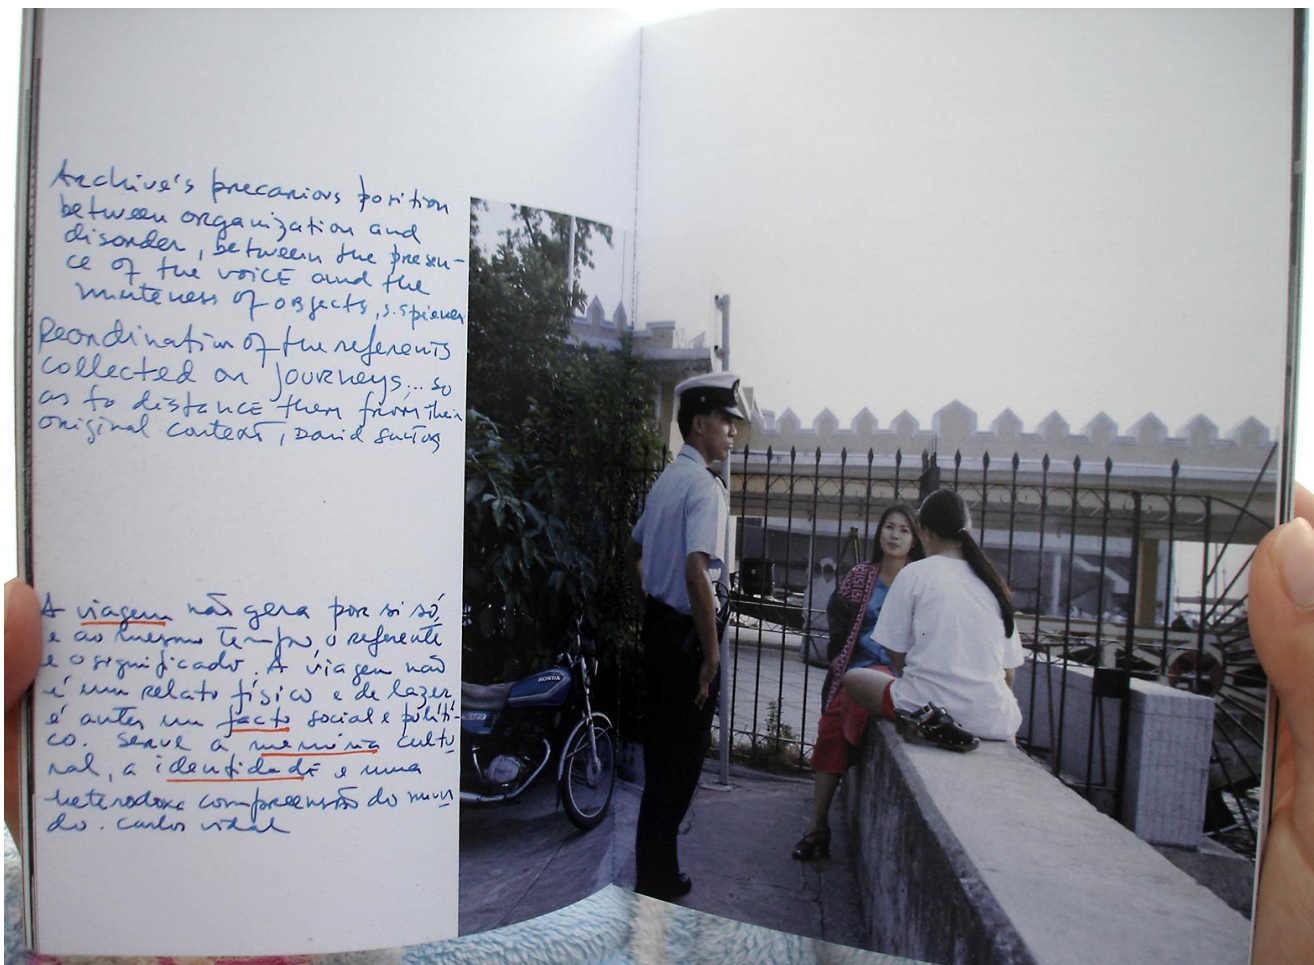 Archive's precarious position
between organization and
disorder, between the presen-
ce of the voice and the
muteness of objects, s. spieker
Reordination of the referents
collected on journeys... so
as to distance them from their
original context, David Santos
A viagem não gera por si só,
e ao mesmo tempo, o referente
e o significado. A viagem não
é um relato físico e de lazer,
é antes um facto social e políti-
co. Serve a memória cultu
ral, a identidade e uma
heterodoxa compreensão do mun
do. Carlos vidal
HONDA